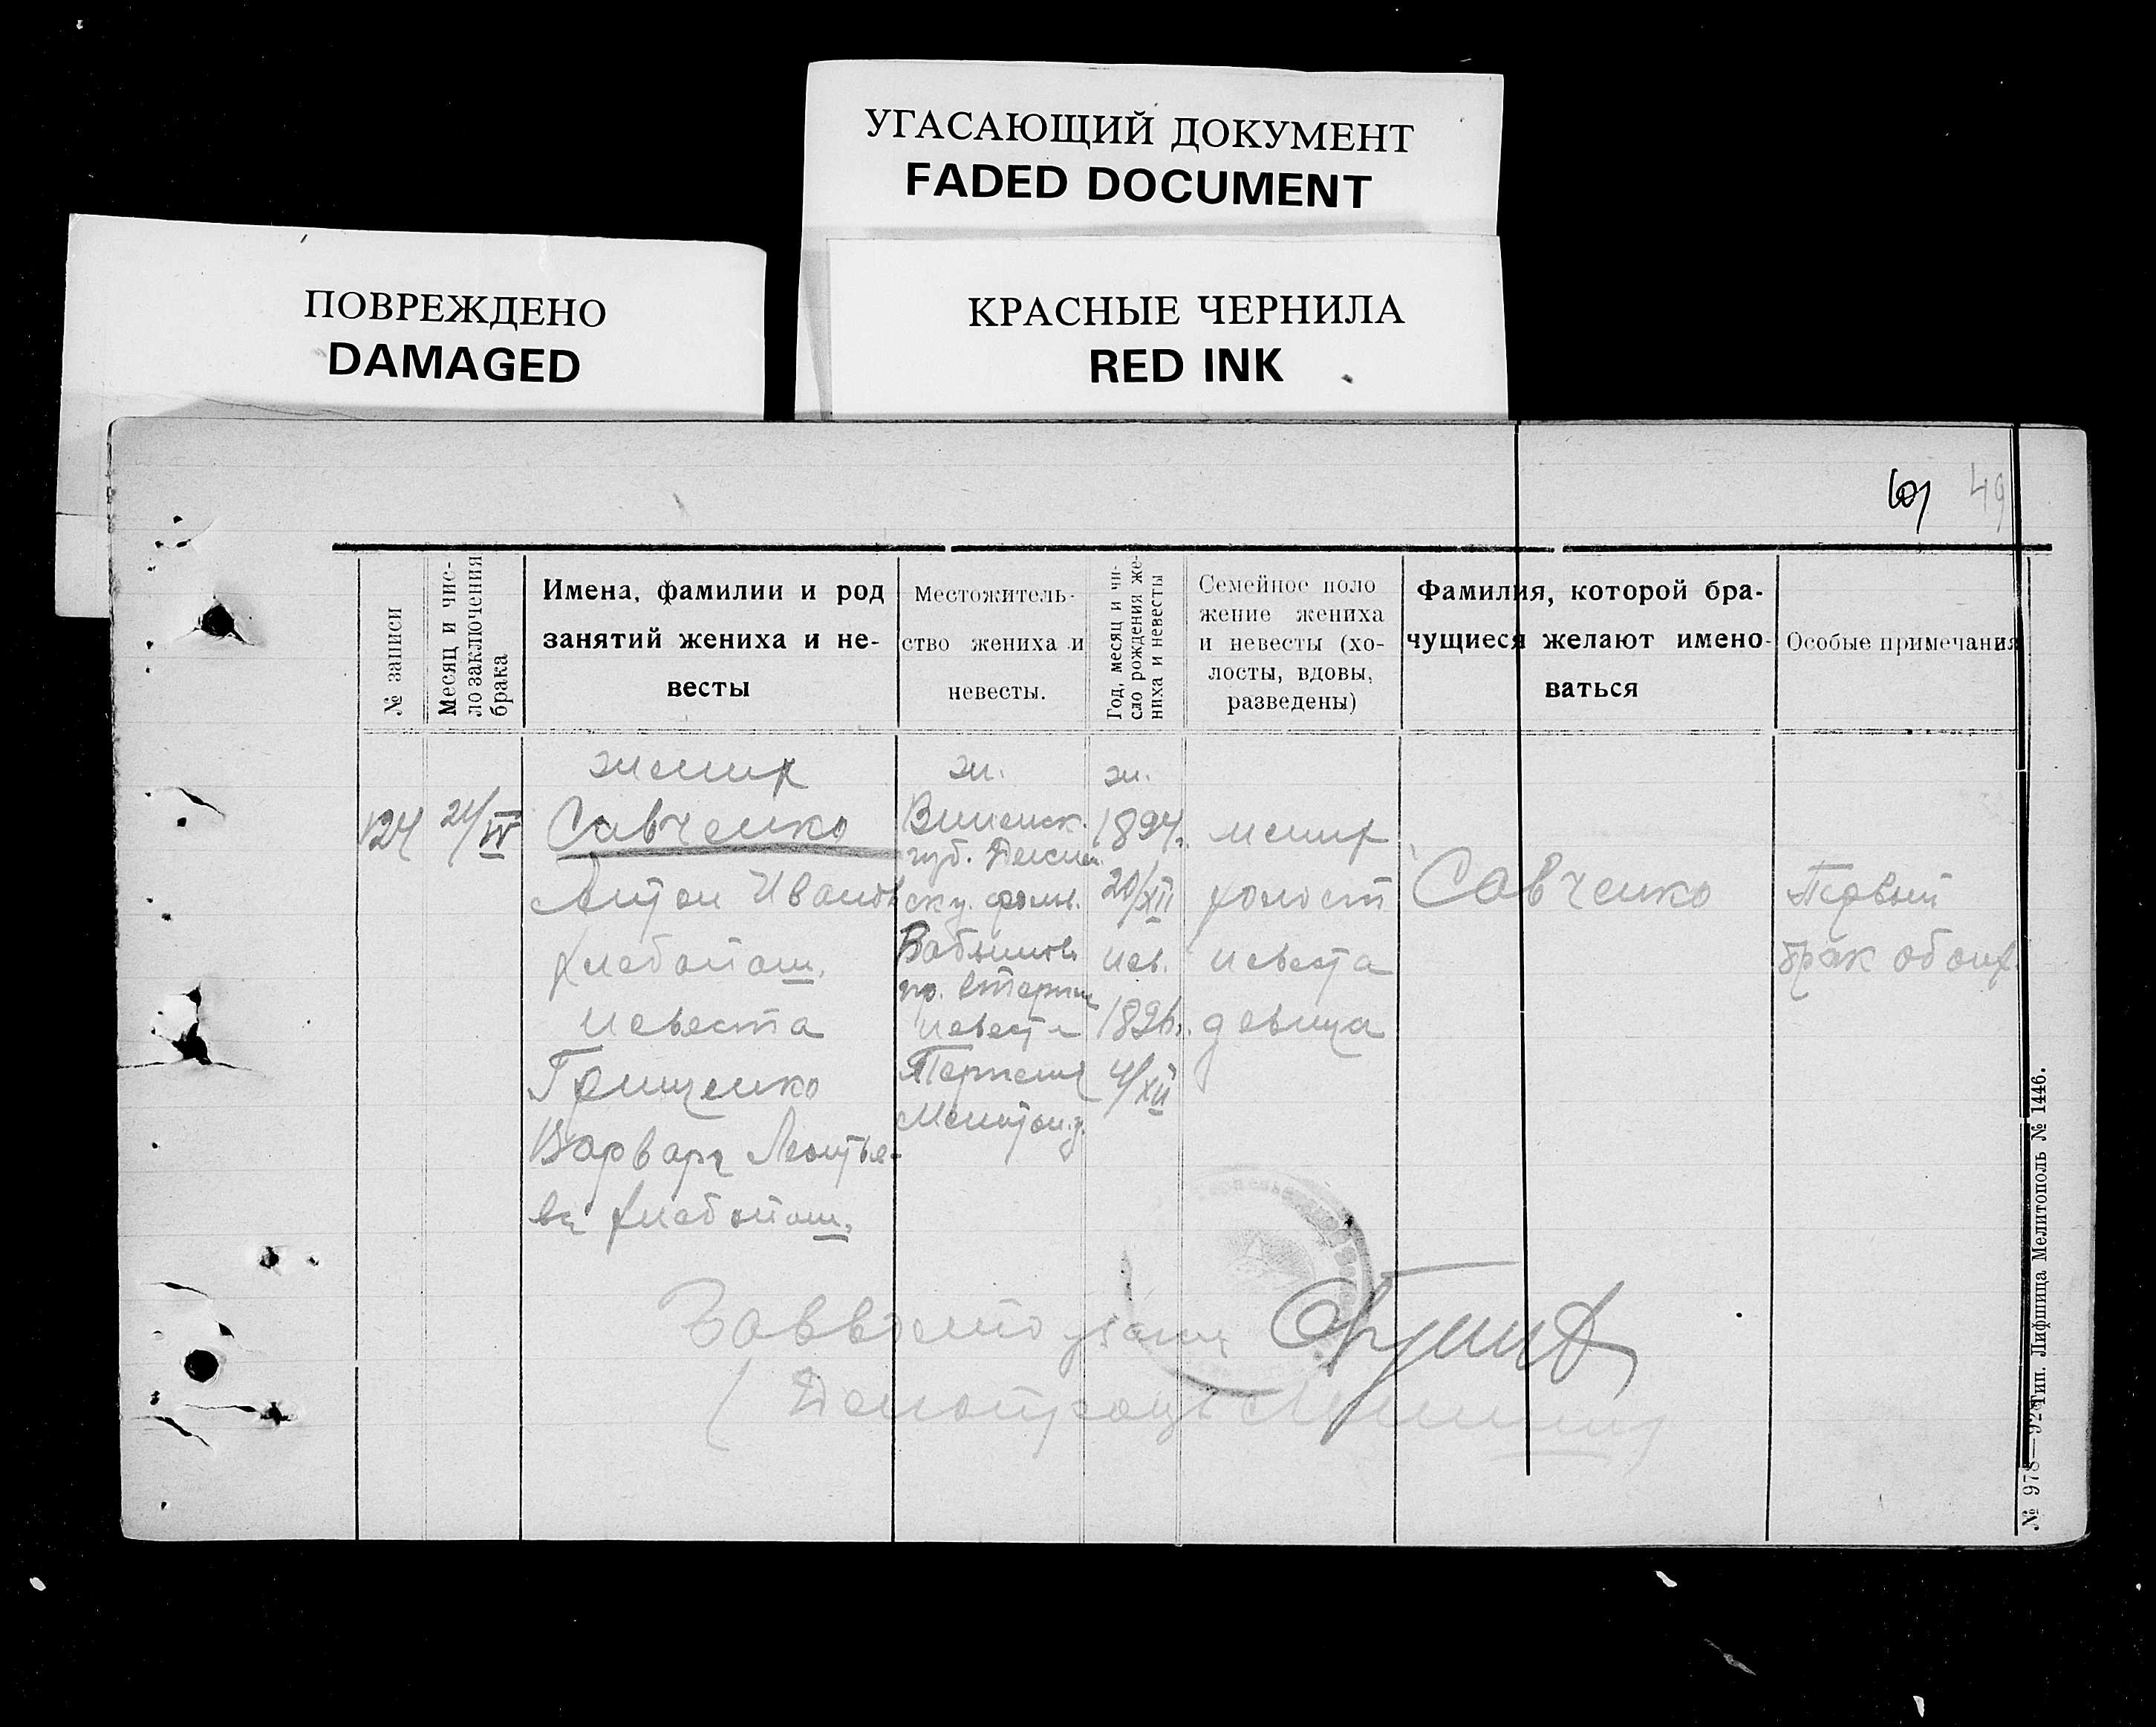 УГАСАЮЩИЙ ДОКУМЕНТ
FADED DOCUMENT
ПОВРЕЖДЕНО
DAMAGED
КРАСНЫЕ ЧЕРНИЛА
RED INK
49
№ записи
Месяц и чис-
ло заключения
брака
Имена, фамилии и род
занятий жениха и не-
весты
Местожитель-
ство жениха и
невесты.
Год, месяц и чи-
сло рождения же-
ниха и невесты
Семейное поло
жение жениха
и невесты (хо-
лосты, вдовы,
разведены)
Фамилия, которой бра-
чущиеся желают имено-
ваться
Особые примечания
124
24/IV
жених
Савченко
Антон Иванов
хлебопаш.
невеста
Грищенко
Варвара Леонтье-
ва хлебопаш.
ж.
Виленск.
губ.
невеста
ж.
1894.
20/XII
нев.
1896.
4/XII
жених
холост
невеста
девица
Савченко
Первый
брак обоих
№ 978—928 Тип. Лифшица Мелитополь № 1446.